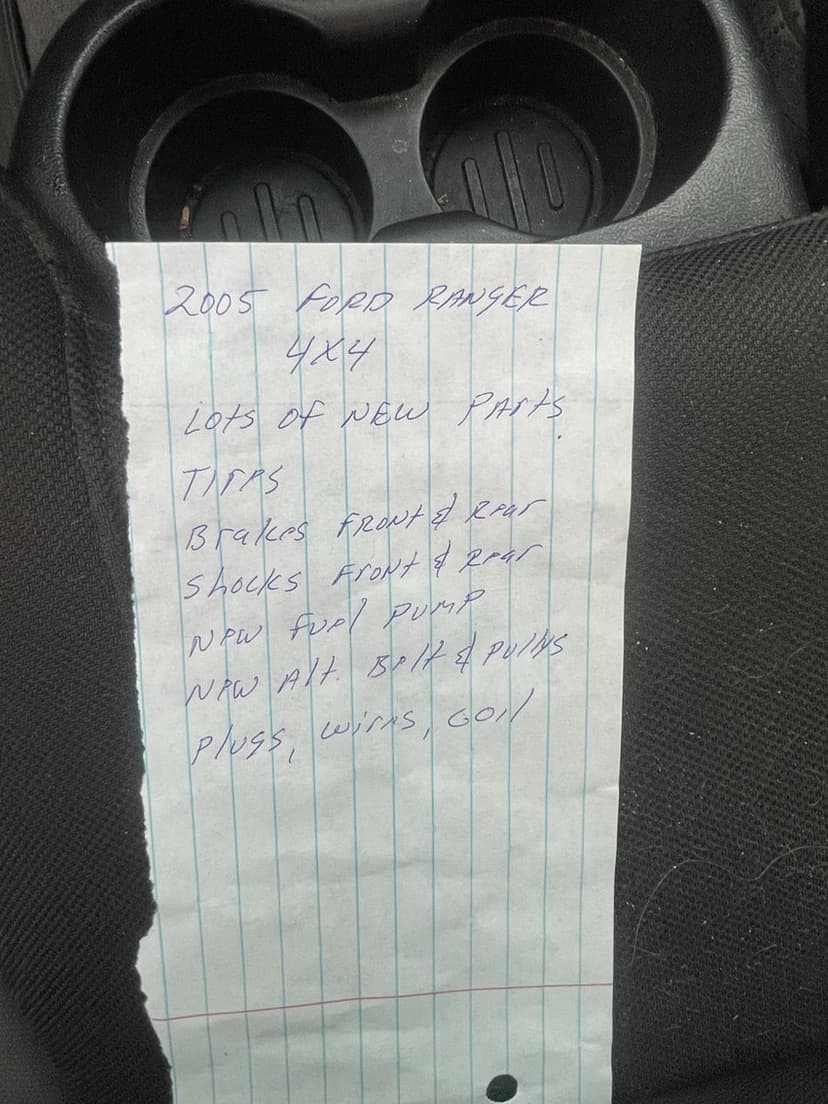 2005 FORD RANGER
4X4
Lots of NEW PArts
TIres
Brakes FRONt & Rear
Shocks FrONt & Rear
NeW fuel PUMP
NeW Alt. Belt & Pullys
Plugs, wires, coil